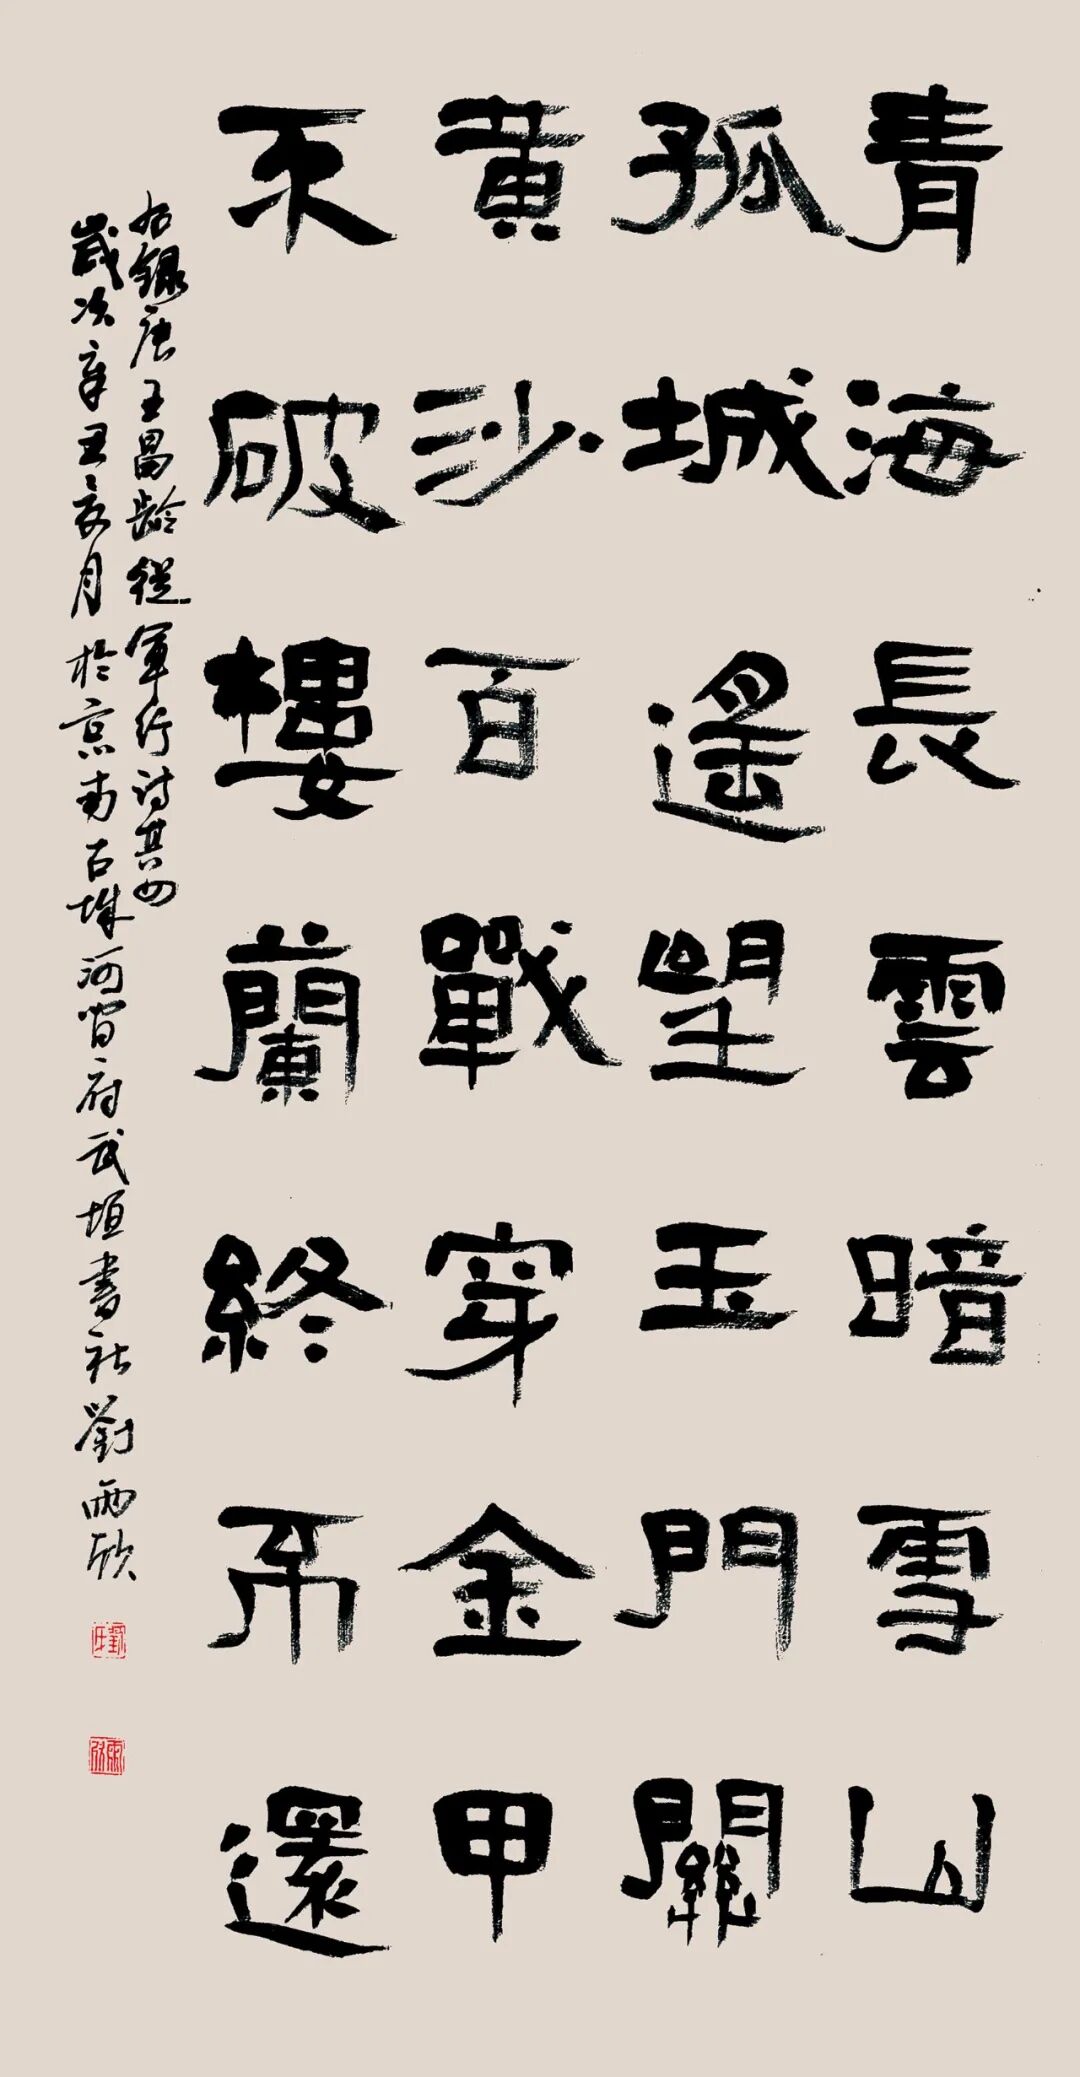 青海長雲暗雪山
孤城遥望玉門關
黄沙百戰穿金甲
不破樓蘭終不還
右録唐王昌齡從軍行詩其四
歲次辛丑亥月於京南古城河间府武垣書社劉雨欣